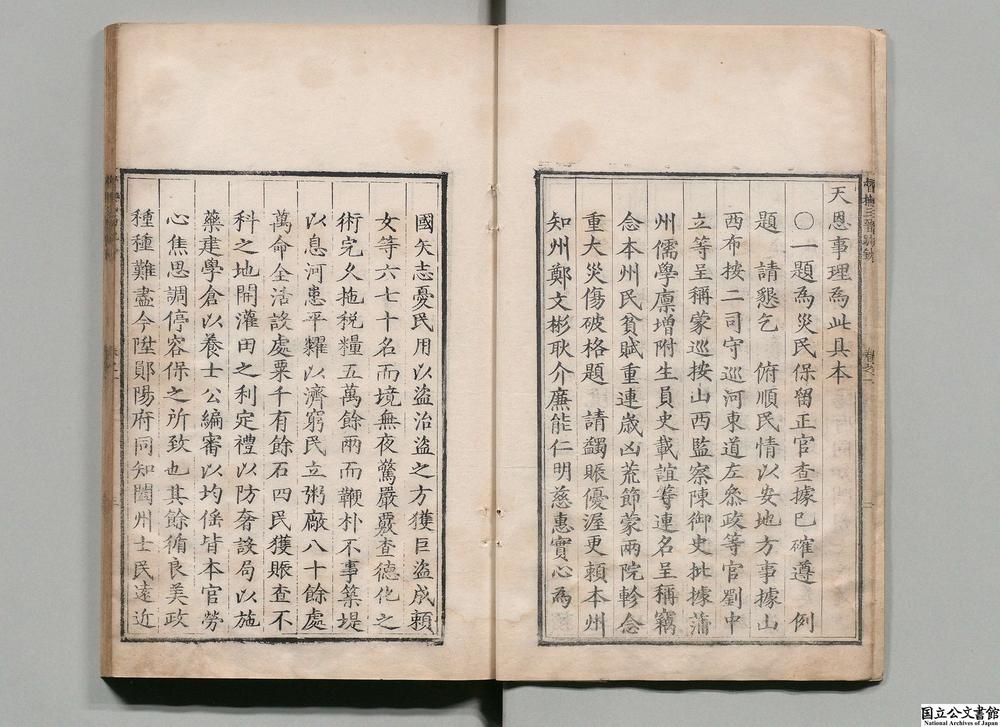 天恩事理為此具本
○一題為災民保留正官查據已確遵　例
題　請懇乞　俯順民情以安地方事據山
西布按二司守巡河東道左叅政等官劉中
立等呈稱蒙巡按山西監察陳御史批據蒲
州儒學廪增附生員史載誼等連名呈稱竊
念本州民貧賦重連歲凶荒節蒙兩院軫念
重大災傷破格題　請蠲賑優渥更賴本州
知州鄭文彬耿介廉能仁明慈惠實心為
國矢志憂民用以盜治盜之方獲巨盜成賴
女等六七十名而境無夜驚嚴覈查德化之
術完久拖税糧五萬餘兩而鞭朴不事築堤
以息河患平糶以濟窮民立粥廠八十餘處
萬命全活設處粟千有餘石四民獲賑查不
科之地開灌田之利定禮以防奢設局以施
藥建學倉以養士公編審以均徭皆本官勞
心焦思調停容保之所致也其餘循良美政
種種難盡今陞鄖陽府同知闔州士民遠近
国立公文書館
National Archives of Japan